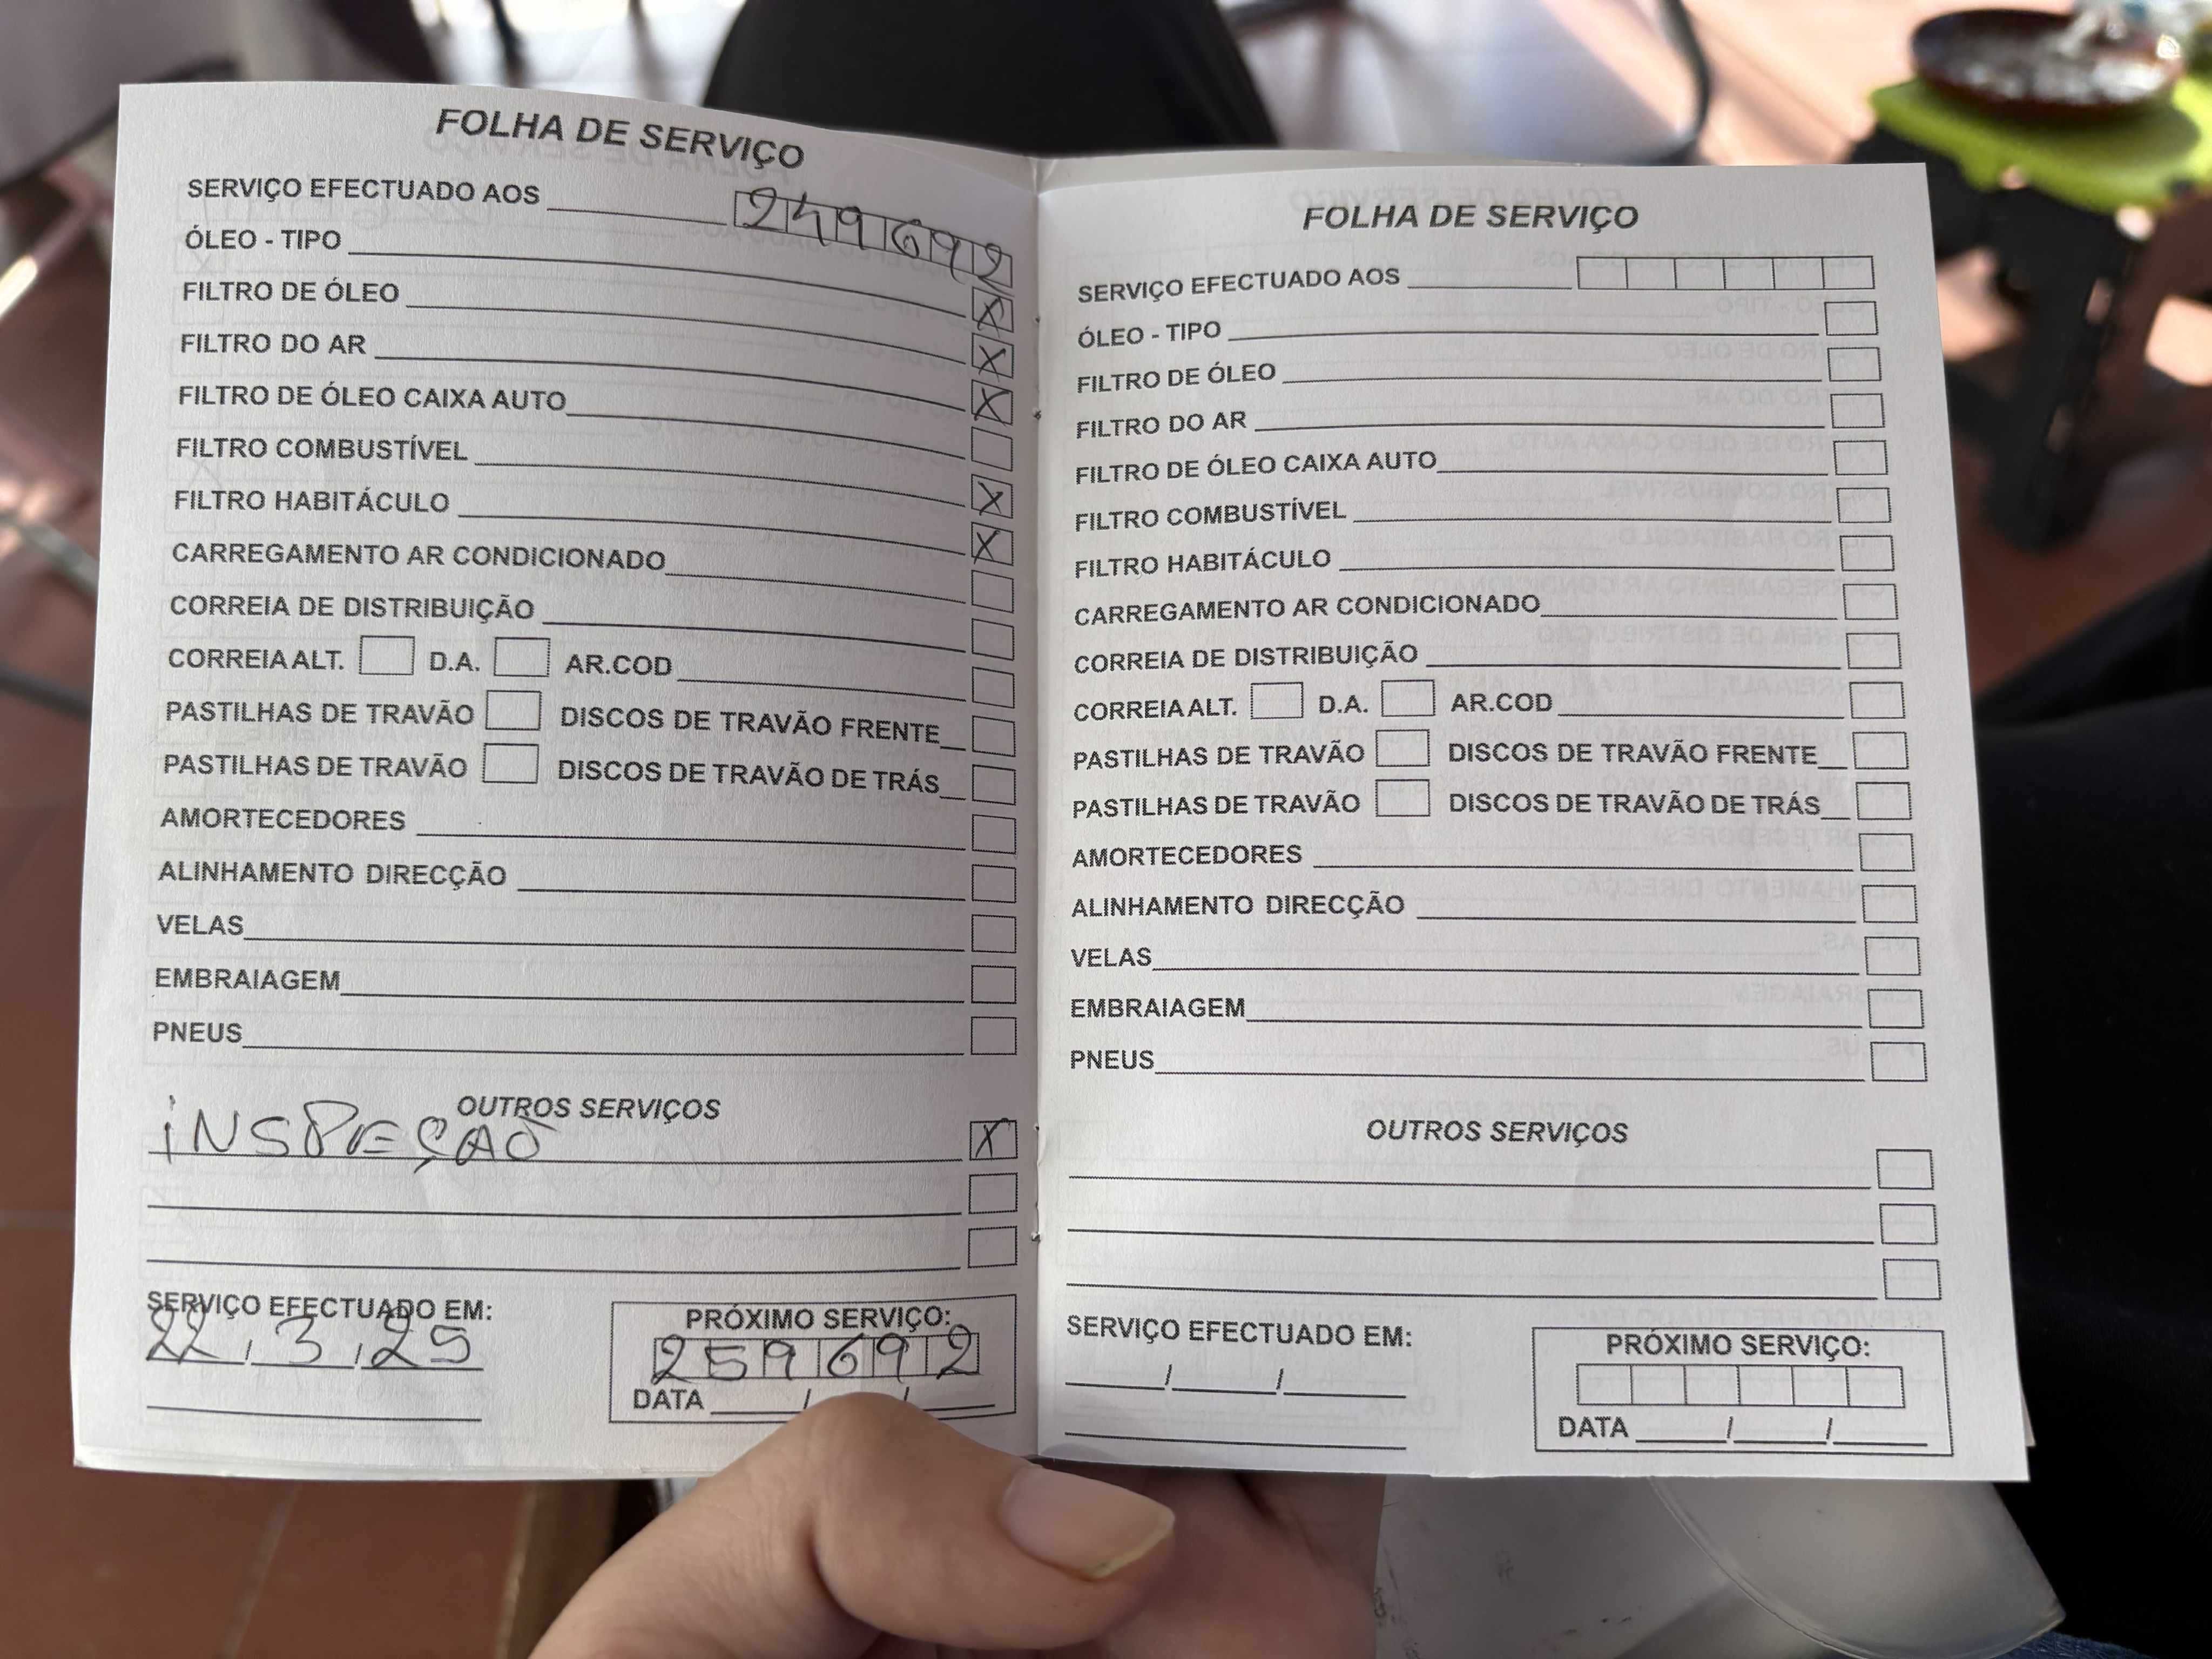 FOLHA DE SERVIÇO
SERVIÇO EFECTUADO AOS 249692
ÓLEO - TIPO X
FILTRO DE ÓLEO X
FILTRO DO AR X
FILTRO DE ÓLEO CAIXA AUTO
FILTRO COMBUSTÍVEL X
FILTRO HABITÁCULO X
CARREGAMENTO AR CONDICIONADO
CORREIA DE DISTRIBUIÇÃO
CORREIA ALT. D.A. AR.COD
PASTILHAS DE TRAVÃO DISCOS DE TRAVÃO FRENTE
PASTILHAS DE TRAVÃO DISCOS DE TRAVÃO DE TRÁS
AMORTECEDORES
ALINHAMENTO DIRECÇÃO
VELAS
EMBRAIAGEM
PNEUS
OUTROS SERVIÇOS
INSPEÇAO X
SERVIÇO EFECTUADO EM:
22/3/25
PRÓXIMO SERVIÇO:
259692
DATA / /
FOLHA DE SERVIÇO
SERVIÇO EFECTUADO AOS
ÓLEO - TIPO
FILTRO DE ÓLEO
FILTRO DO AR
FILTRO DE ÓLEO CAIXA AUTO
FILTRO COMBUSTÍVEL
FILTRO HABITÁCULO
CARREGAMENTO AR CONDICIONADO
CORREIA DE DISTRIBUIÇÃO
CORREIA ALT. D.A. AR.COD
PASTILHAS DE TRAVÃO DISCOS DE TRAVÃO FRENTE
PASTILHAS DE TRAVÃO DISCOS DE TRAVÃO DE TRÁS
AMORTECEDORES
ALINHAMENTO DIRECÇÃO
VELAS
EMBRAIAGEM
PNEUS
OUTROS SERVIÇOS
SERVIÇO EFECTUADO EM:
/ /
PRÓXIMO SERVIÇO:
DATA / /